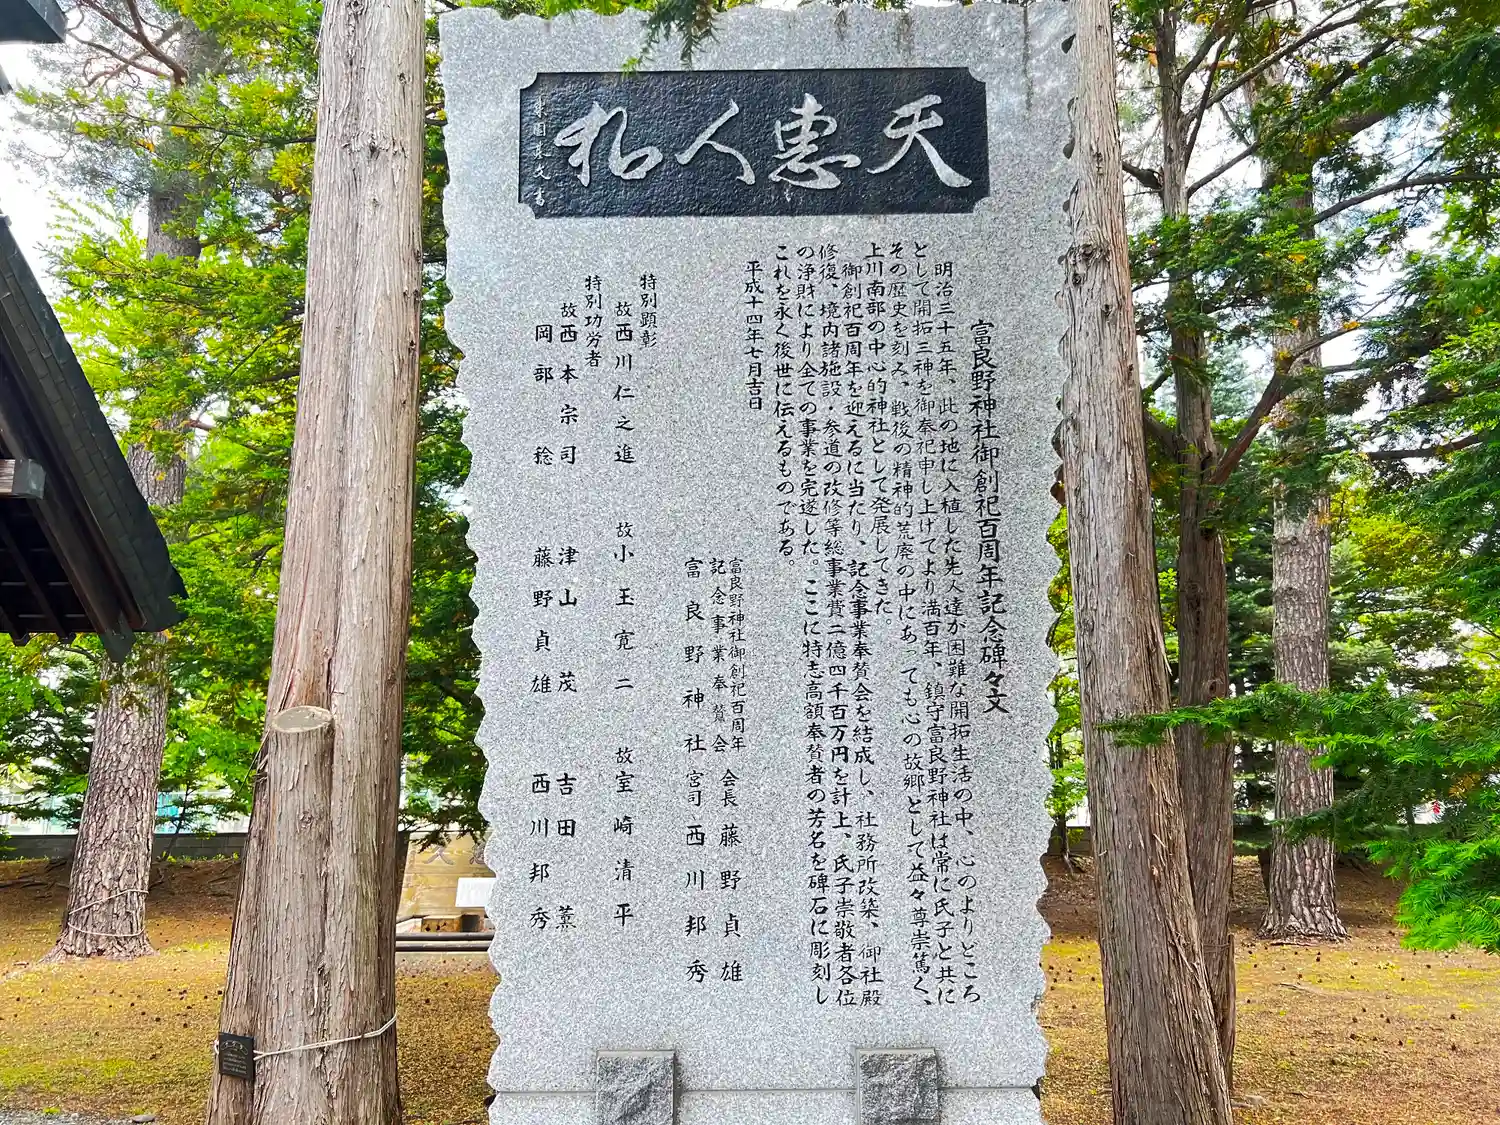 天恵人和
富良野神社御創祀百周年記念碑々文
明治三十五年、此の地に入植した先人達が困難な開拓生活の中、心のよりところ
として開拓三神を御奉祀申し上げてより満百年、鎮守富良野神社は常に氏子と共に
その歴史を刻み、戦後の精神的荒廃の中にあっても心の故郷として益々尊崇篤く、
上川南部の中心的神社として発展してきた。
御創祀百周年を迎えるに当たり、記念事業奉賛会を結成し、社務所改築、御社殿
修復、境内諸施設・参道の改修等総事業費二億四千百万円を計上、氏子崇敬者各位
の浄財により全ての事業を完遂した。ここに特志高額奉賛者の芳名を碑石に彫刻し
これを永く後世に伝えるものである。
平成十四年七月吉日
富良野神社御創祀百周年
記念事業奉賛会 会長 藤野貞雄
富良野神社 宮司 西川邦秀
特別顕彰
故西川仁之進 故小玉寛二 故室崎清平
特別功労者
故西本宗司 津山茂 吉田薫
岡部稔 藤野貞雄 西川邦秀